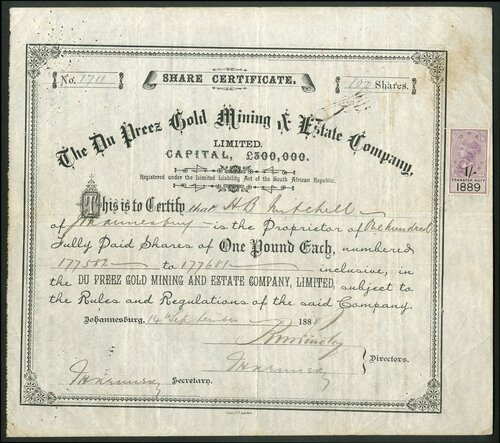 No. 1711
SHARE CERTIFICATE.
100 Shares.
The Du Preez Gold Mining & Estate Company,
LIMITED.
CAPITAL, £300,000.
Registered under the Limited Liability Act of the South African Republic.
This is to Certify that H B Mitchell
of Johannesburg is the Proprietor of One hundred
Fully Paid Shares of One Pound Each, numbered
177582 to 177681 inclusive, in
the DU PREEZ GOLD MINING AND ESTATE COMPANY, LIMITED, subject to
the Rules and Regulations of the said Company.
Johannesburg, 14 September 1888
Directors.
Secretary.
1/-
TRANSFER DUTY
1889